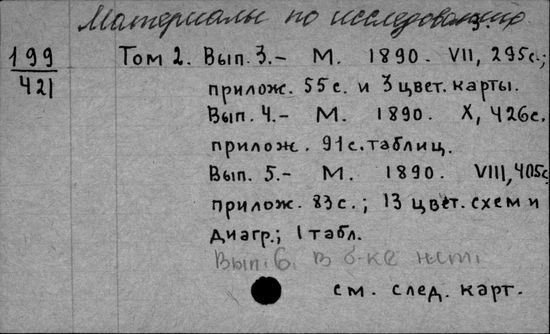 Материалы по исследованию 3.
199
421
Том 2. Вып. 3.- М. 1890. VII, 295с.;
прилож. 55с. и 3 цвет. карты.
Вып. 4.- М. 1890. X, 426с.
прилож. 91с. таблиц.
Вып. 5.- М. 1890. VIII, 405с
прилож. 83с.; 13 цвет. схем и
диагр.; 1 табл.
Вып. 6. в б-ке нет.
см. след. карт.